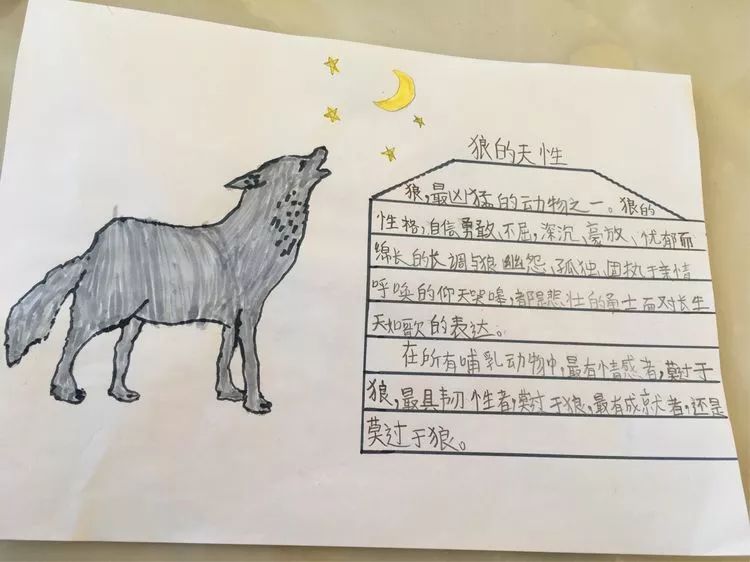 狼的天性
狼,最凶猛的动物之一。狼的
性格,自信勇敢、不屈,深沉、豪放、忧郁而
绵长的长调与狼幽怨、孤独、固执于亲情
呼唤的仰天哭嚎,都是悲壮的勇士面对长生
天如歌的表达。
在所有哺乳动物中,最有情感者,莫过于
狼,最具韧性者,莫过于狼,最有成就者,还是
莫过于狼。